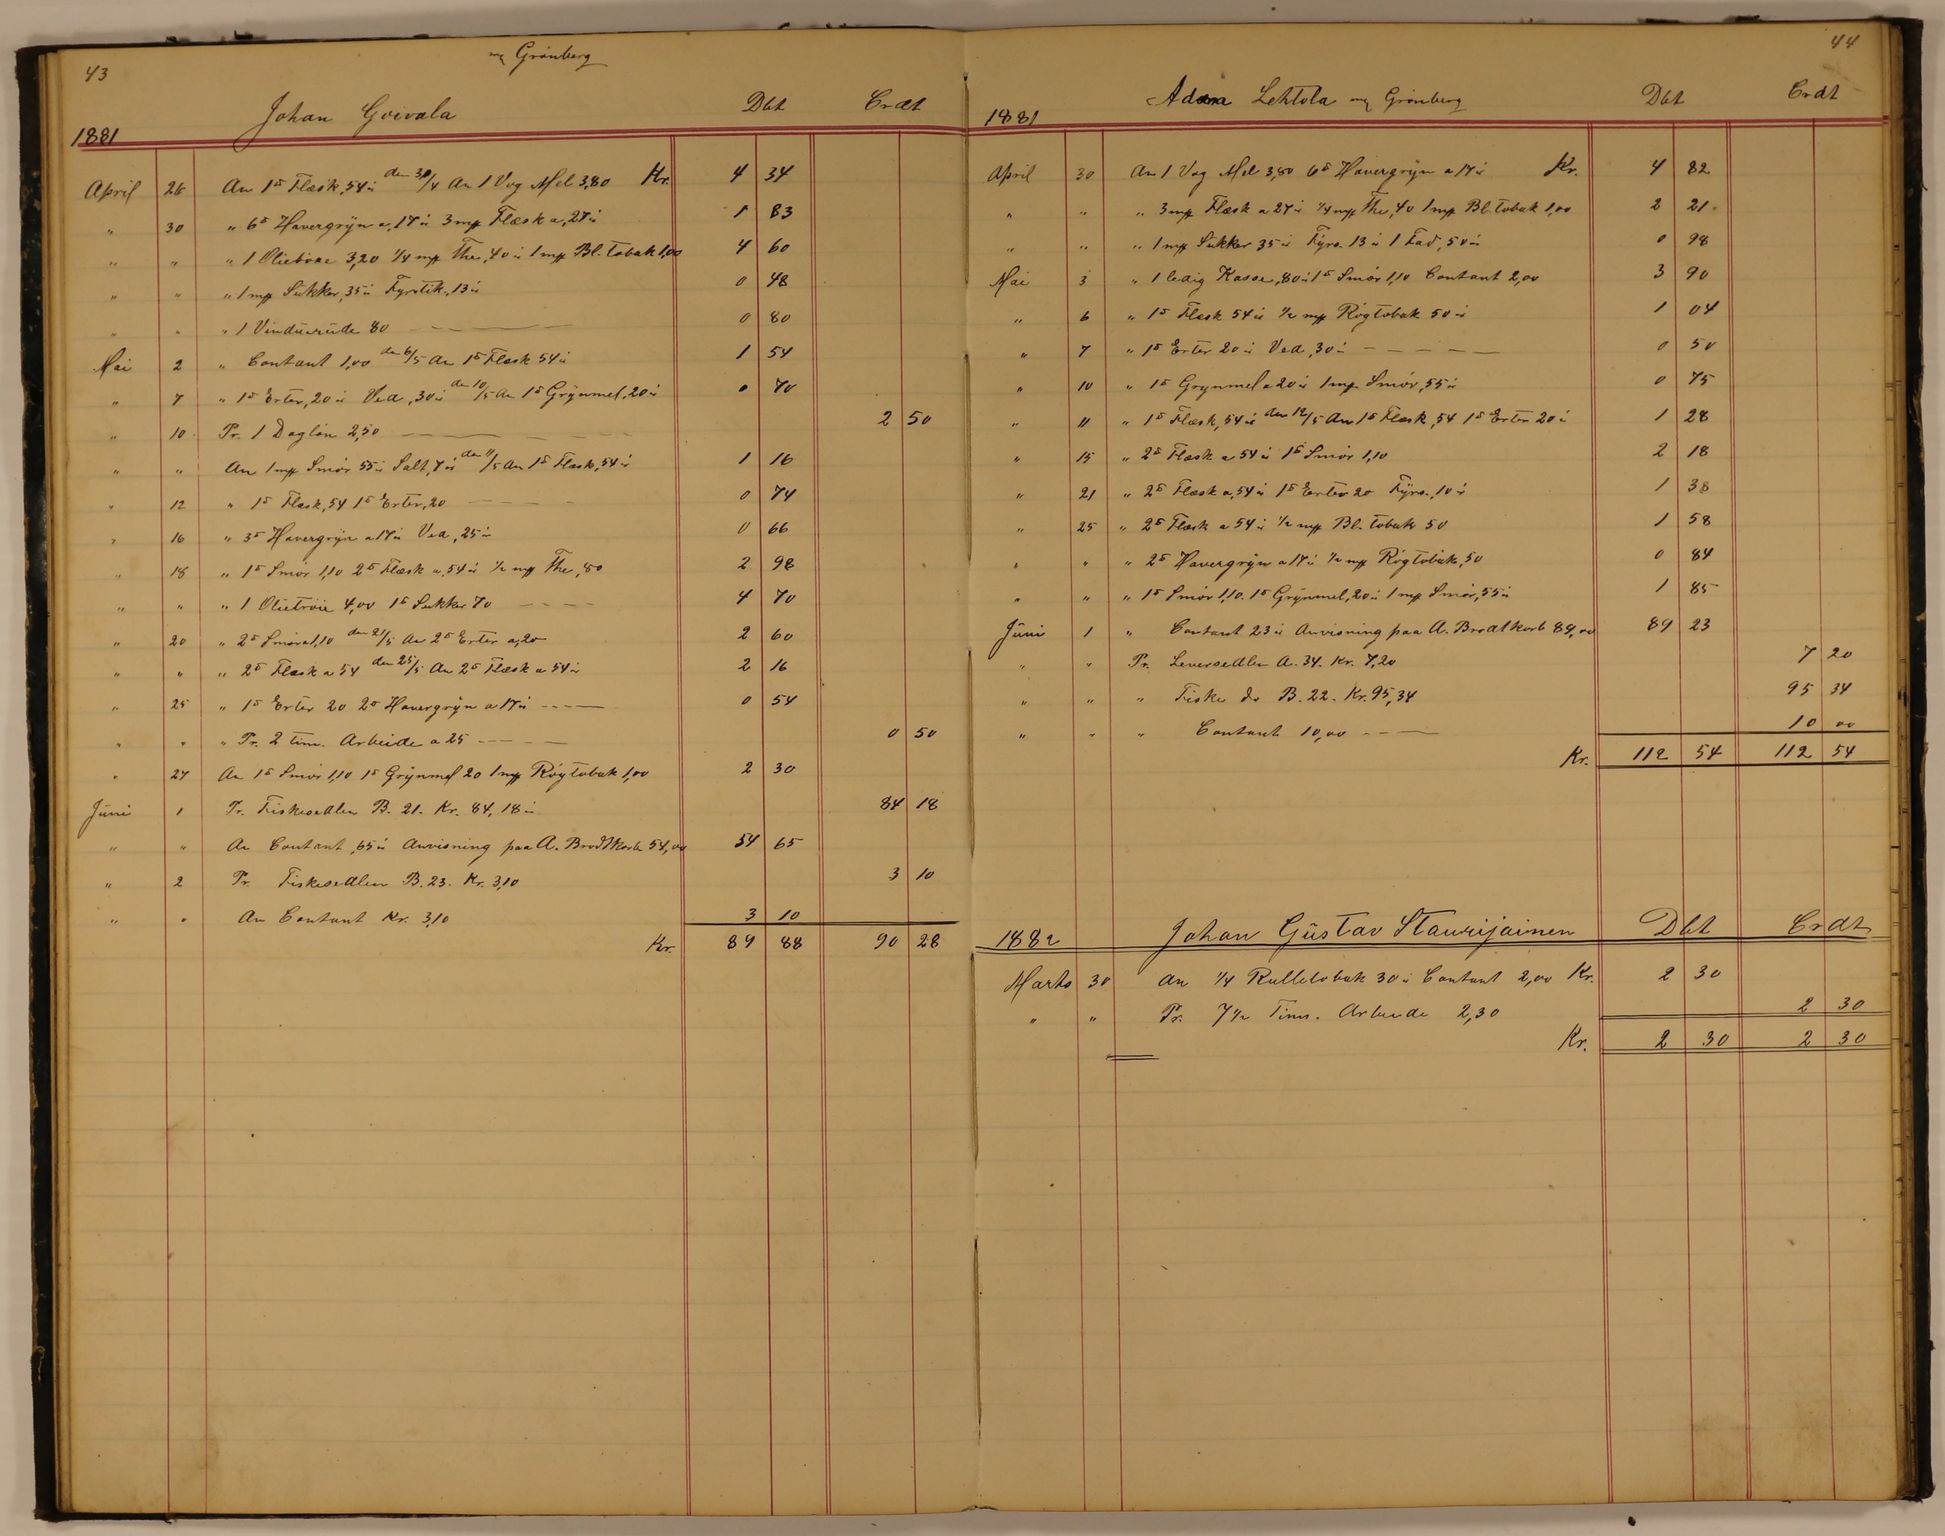 43
mg Grönberg
Johan Goivala Dbt Crdt
1881
April 26 An 1 ℔ Flæsk, 54 ö den 30/4 An 1 Vog Mel 3,80 Kr. 4 34
" 30 " 6 ℔ Havergryn a, 17 ö 3 mp Flæsk a, 27 ö 1 83
" " " 1 Oliebuxe 3,20 1/4 mp The, 40 ö 1 mp Bl. tobak 1,00 4 60
" " " 1 mp Sukker, 35 ö Fyrstik, 13 ö 0 48
" " " 1 Vinduerude 80 0 80
Mai 2 " Contant 1,00 den 6/5 An 1 ℔ Flæsk 54 ö 1 54
" 7 " 1 ℔ Erter, 20 ö Ved, 30 ö den 10/5 An 1 ℔ Grynmel, 20 ö 0 70
" 10 Pr. 1 Dagløn 2,50 2 50
" " An 1 mp Smör 55 ö Salt, 7 ö den 11/5 An 1 ℔ Flæsk, 54 ö 1 16
" 12 " 1 ℔ Flæsk, 54 1 ℔ Erter, 20 0 74
" 16 " 3 ℔ Havergryn a 17 ö Ved, 25 ö 0 66
" 18 " 1 ℔ Smör 1,10 2 ℔ Flæsk a, 54 ö 1/2 mp The, 80 2 98
" " " 1 Olietröie 4,00 1 ℔ Sukker 70 4 70
" 20 " 2 ℔ Smör a 1,10 den 21/5 An 2 ℔ Erter a, 20 2 60
" " " 2 ℔ Flæsk a 54 den 25/5 An 2 ℔ Flæsk a 54 ö 2 16
" 25 " 1 ℔ Erter 20 2 ℔ Havergryn a 17 ö 0 54
" " " Pr. 2 tim. Arbeide a 25 0 50
" 27 An 1 ℔ Smör 1,10 1 ℔ Grynmel 20 1 mp Rögtobak 1,00 2 30
Juni 1 Pr. Fiskesedlen B. 21. Kr. 84, 18 ö 84 18
" " An Contant, 65 ö Anvisning paa A. Brodtkorb 54,00 54 65
" 2 Pr. Fiskesedlen B. 23. Kr. 3,10 3 10
" " An Contant Kr. 3,10 3 10
Kr. 89 88 90 28
44
Adam Lehtola mg Grönberg Dbt Crdt
1881
April 30 An 1 Vog Mel 3,80 6 ℔ Havergryn a 17 ö Kr. 4 82
" " " 3 mp Flæsk a 27 ö 1/4 mp The, 40 1 mp Bl. tobak 1,00 2 21
" " " 1 mp Sukker 35 ö Fyrs. 13 ö 1 Fad, 50 ö 0 98
Mai 3 " 1 ledig Kasse, 80 ö 1 ℔ Smör 1,10 Contant 2,00 3 90
" 6 " 1 ℔ Flæsk 54 ö 1/2 mp Rögtobak 50 ö 1 04
" 7 " 1 ℔ Erter 20 ö Ved, 30 ö 0 50
" 10 " 1 ℔ Grynmel a 20 ö 1 mp Smör, 55 ö 0 75
" 11 " 1 ℔ Flæsk, 54 ö den 12/5 An 1 ℔ Flæsk, 54 1 ℔ Erter 20 ö 1 28
" 15 " 2 ℔ Flæsk a 54 ö 1 ℔ Smör 1,10 2 18
" 21 " 2 ℔ Flæsk a, 54 ö 1 ℔ Erter 20 Fyrs., 10 ö 1 38
" 25 " 2 ℔ Flæsk a 54 ö 1/2 mp Bl. tobak 50 1 58
" " " 2 ℔ Havergryn a 17 ö 1/2 mp Rögtobak, 50 0 84
" " " 1 ℔ Smör 1,10. 1 ℔ Grynmel, 20 ö 1 mp Smör, 55 ö 1 85
Juni 1 " Contant 23 ö Anvisning paa A. Brodtkorb 89,00 89 23
" " Pr. Leversedlen A. 34. Kr. 7,20 7 20
" " " Fiske do B. 22. Kr. 95,34 95 34
" " " Contant 10,00 10 00
Kr. 112 54 112 54
1882 Johan Gustav Staurijainen Dbt Crdt
Marts 30 An 1/4 Rulletobak 30 ö Contant 2,00 Kr. 2 30
" " Pr. 7 1/2 Tims. Arbeide 2,30 2 30
Kr. 2 30 2 30